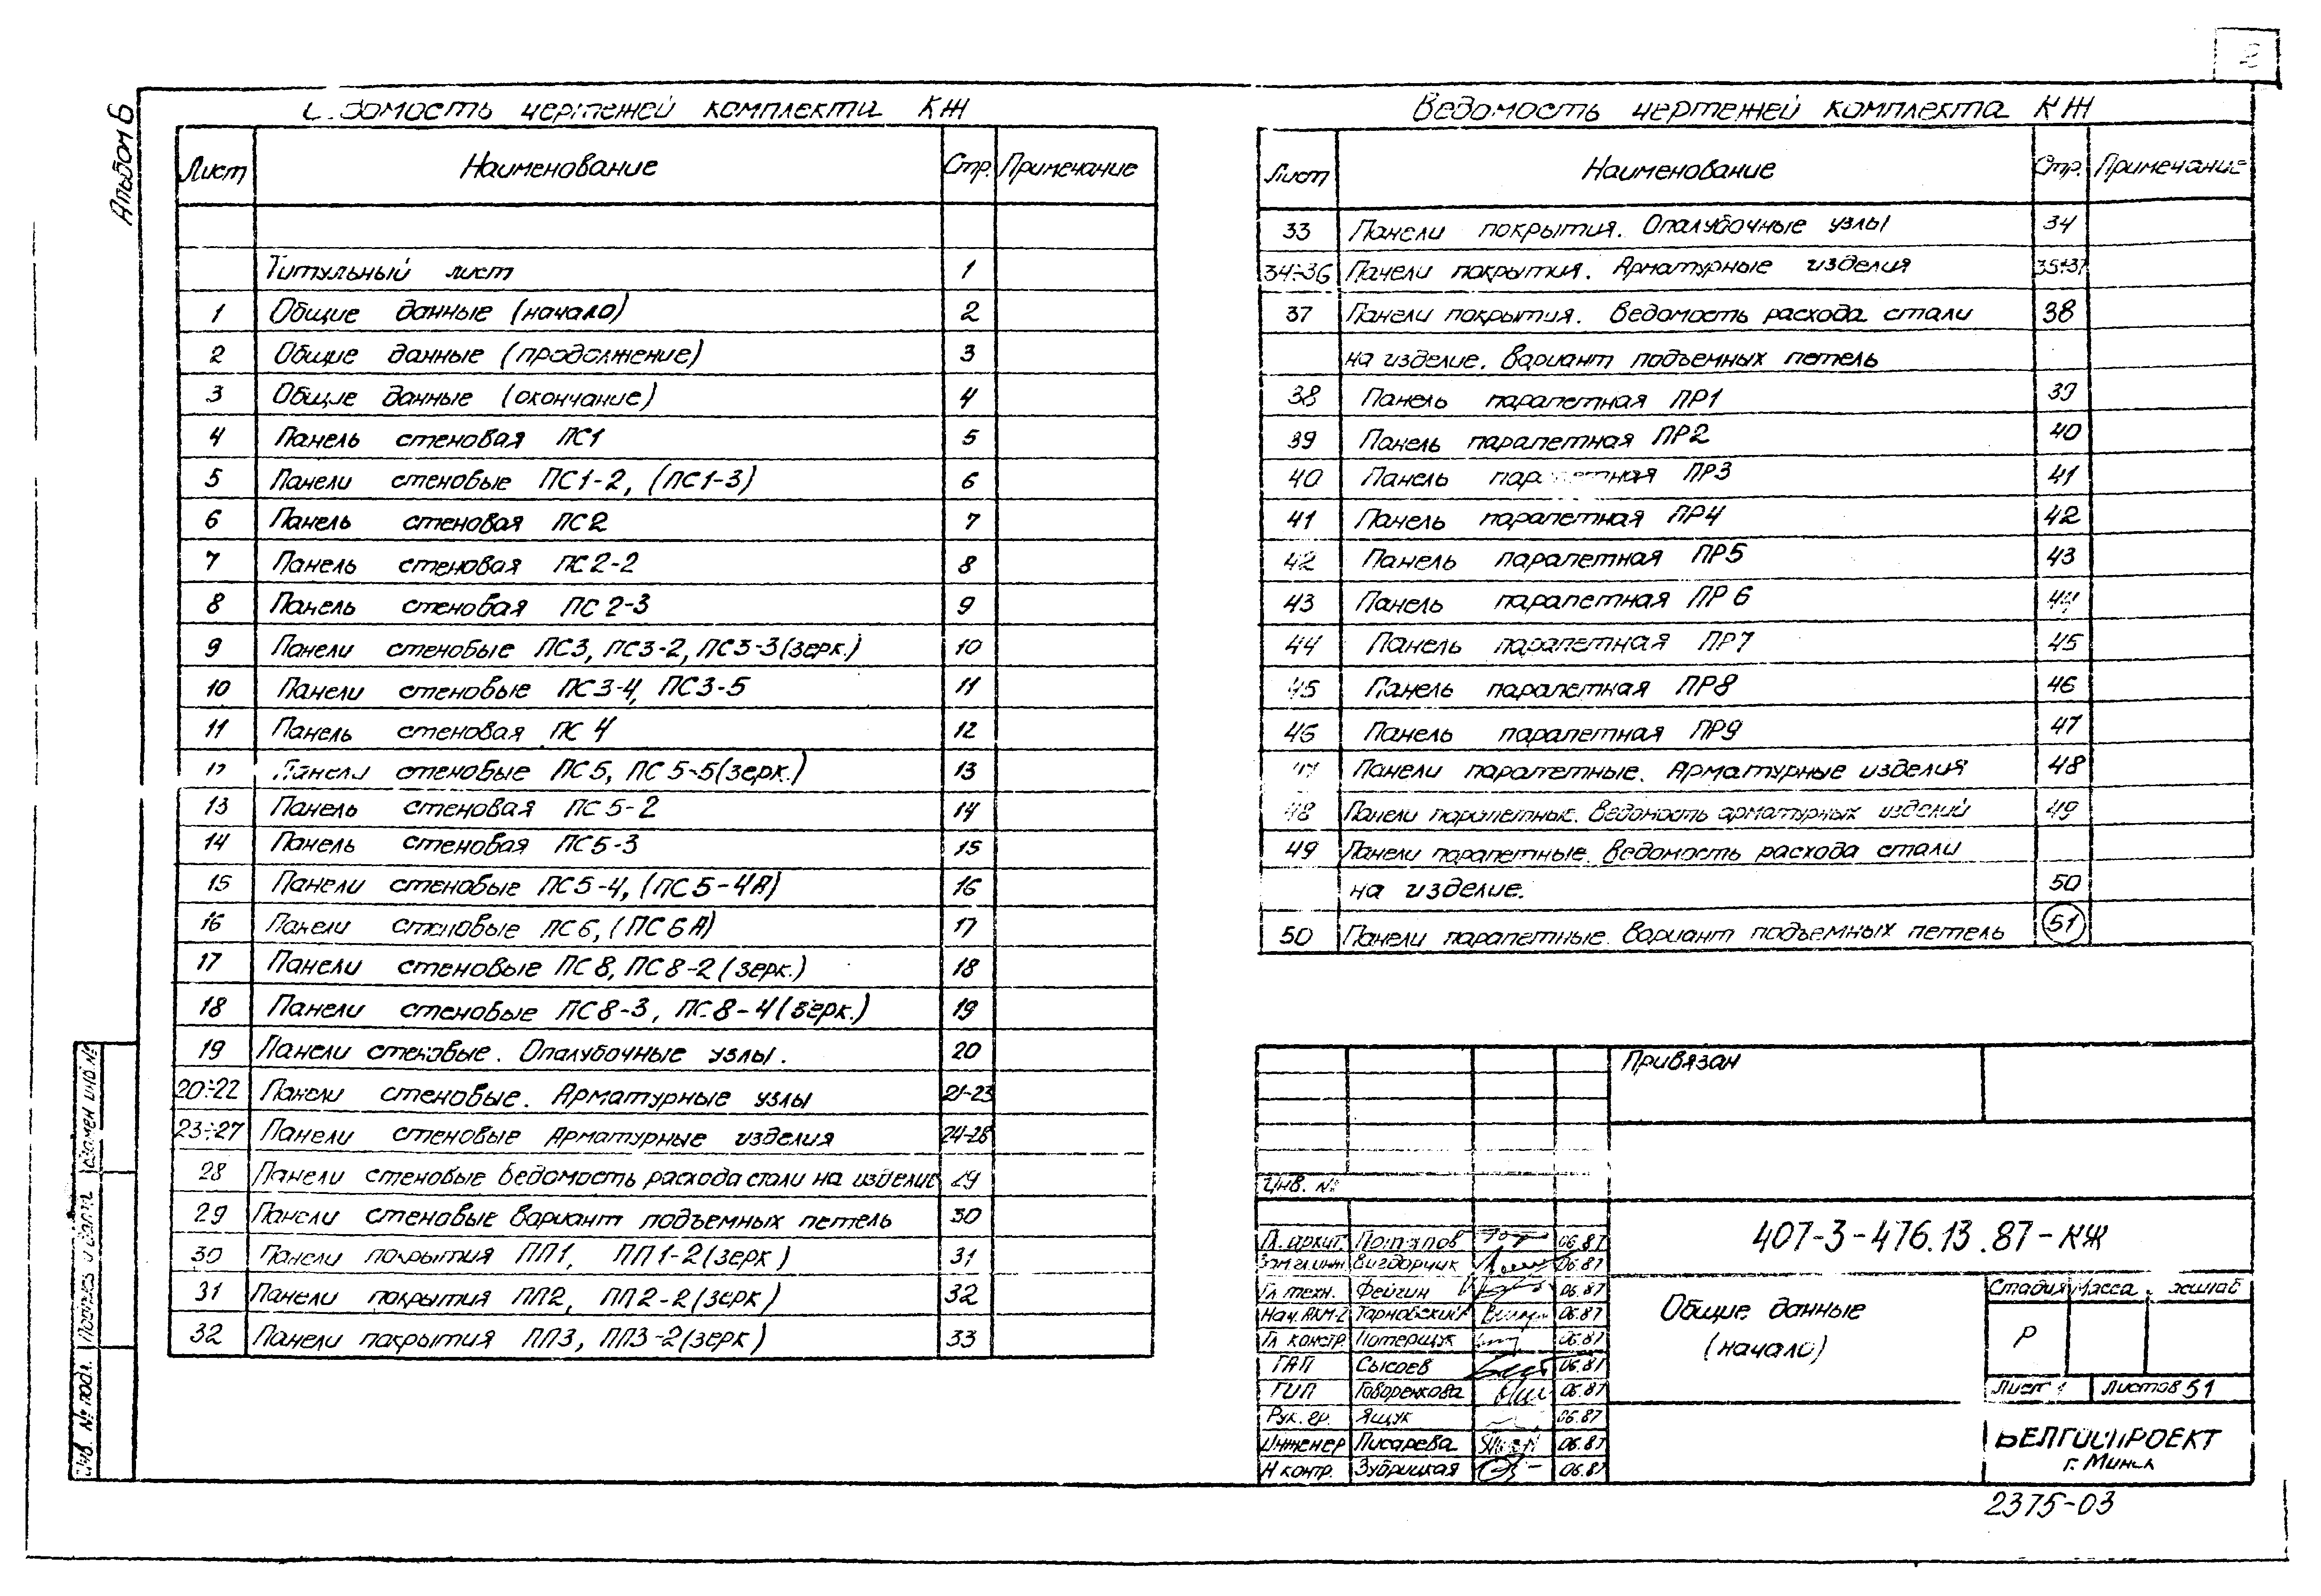 2
Альбом 6
комплекта КЖ
чертежей
Лист Наименование Стр. Примечание
Титульный лист 1
1 Общие данные (начало) 2
2 Общие данные (продолжение) 3
3 Общие данные (окончание) 4
4 Панель стеновая ПС1 5
5 Панели стеновые ПС1-2, (ПС1-3) 6
6 Панель стеновая ПС2 7
7 Панель стеновая ПС2-2 8
8 Панель стеновая ПС2-3 9
9 Панели стеновые ПС3, ПС3-2, ПС3-3(зерк.) 10
10 Панели стеновые ПС3-4, ПС3-5 11
11 Панель стеновая ПС4 12
Панели стеновые ПС5, ПС5-5(зерк.) 13
13 Панель стеновая ПС5-2 14
14 Панель стеновая ПС5-3 15
15 Панели стеновые ПС5-4, (ПС5-4А) 16
16 Панели стеновые ПС6, (ПС6А) 17
17 Панели стеновые ПС8, ПС8-2(зерк.) 18
18 Панели стеновые ПС8-3, ПС8-4(зерк.) 19
19 Панели стеновые. Опалубочные узлы. 20
20÷22 Панели стеновые. Арматурные узлы 21-23
23÷27 Панели стеновые Арматурные изделия 24-28
28 Панели стеновые Ведомость расхода стали на изделие 29
29 Панели стеновые Вариант подъемных петель 30
30 Панели покрытия ПП1, ПП1-2(зерк) 31
31 Панели покрытия ПП2, ПП2-2(зерк) 32
32 Панели покрытия ПП3, ПП3-2(зерк) 33
Ведомость чертежей комплекта КЖ
Лист Наименование Стр. Примечание
33 Панели покрытия. Опалубочные узлы 34
34÷36 Панели покрытия. Арматурные изделия 35÷37
37 Панели покрытия. Ведомость расхода стали 38
на изделие. Вариант подъемных петель
38 Панель парапетная ПР1 39
39 Панель парапетная ПР2 40
40 Панель парапетная ПР3 41
41 Панель парапетная ПР4 42
42 Панель парапетная ПР5 43
43 Панель парапетная ПР6 44
44 Панель парапетная ПР7 45
45 Панель парапетная ПР8 46
46 Панель парапетная ПР9 47
Панели парапетные. Арматурные изделия 48
48 Панели парапетные. Ведомость арматурных изделий 49
49 Панели парапетные. Ведомость расхода стали
на изделие. 50
50 Панели парапетные. Вариант подъемных петель 51
Привязан
Инв. №
Гл. архит. Потапов 06.87
Зам гл.инж Вигдорчик 06.87
Гл техн. Фейгин 06.87
Тарновский 06.87
Гл констр. Потерщук 06.87
ГАП Сысоев 06.87
ГИП Говоренкова 06.87
Рук. гр. Ящук 06.87
Инженер Писарева 06.87
Н контр. Зубрицкая 06.87
407-3-476.13.87-КЖ
Общие данные
(начало)
Стадия Масса
Р
Лист 1 Листов 51
БЕЛГОСПРОЕКТ
г. Минск
2375-03
Инв. № подл. Подпись и дата Взамен инв. №